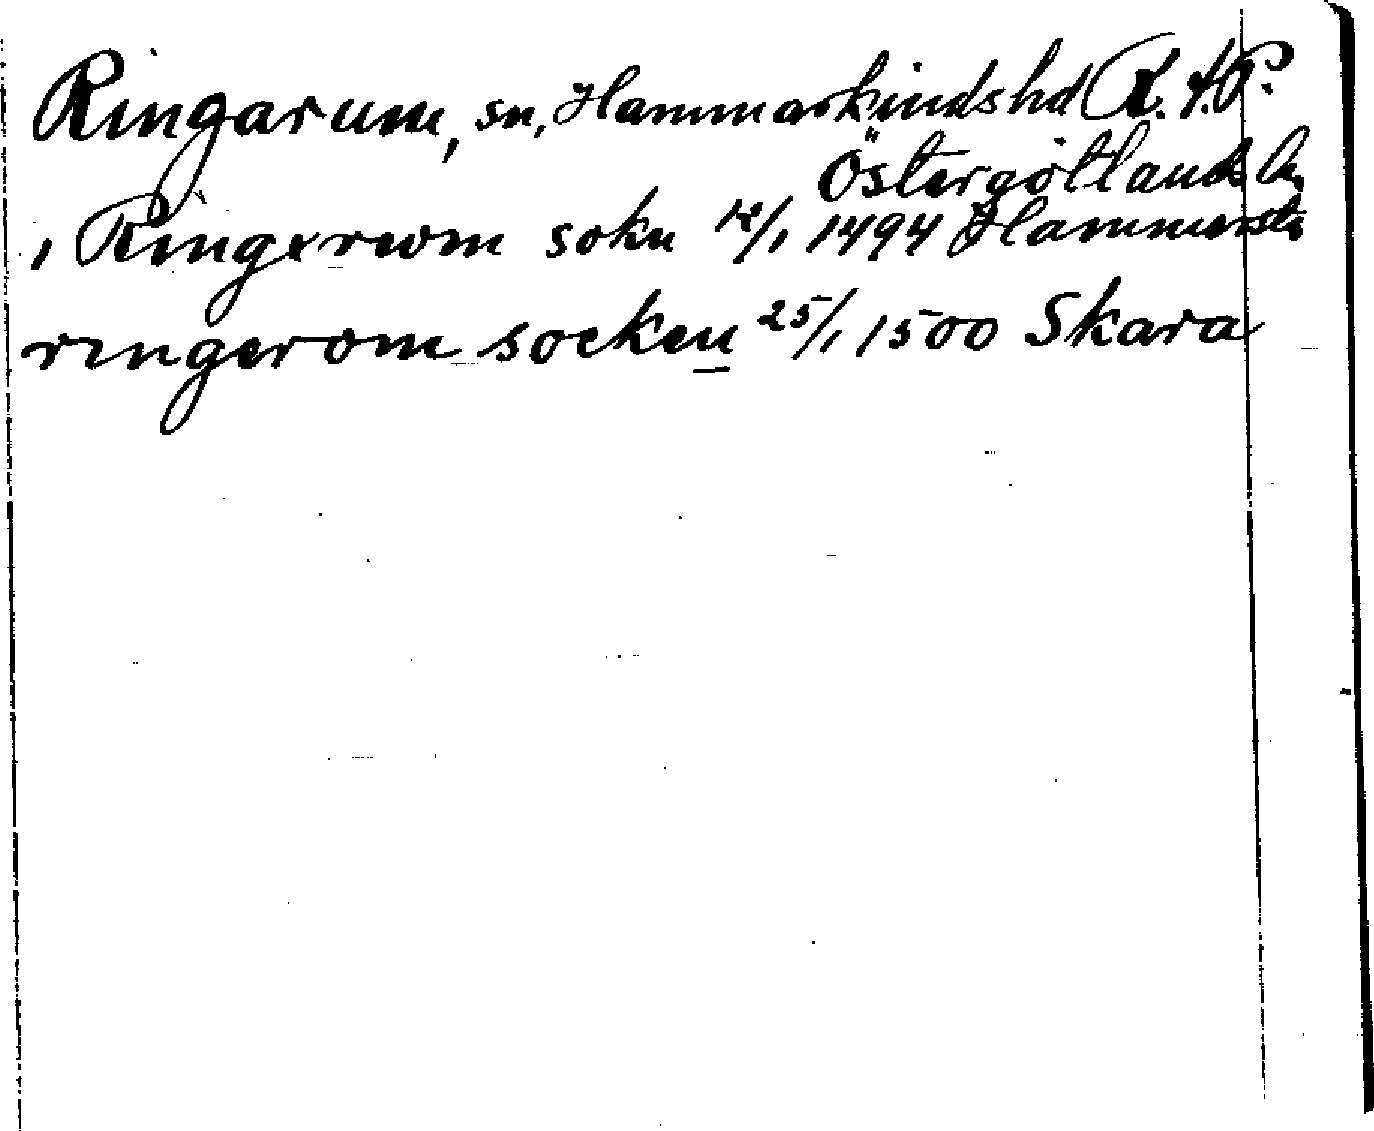 Ringarum, sn, Hammarkinds hd R. A. P.
Östergötlands l.
i Ringerwm sokn 12/1 1494 Hammersta
ringerom socken 25/1 1500 Skara